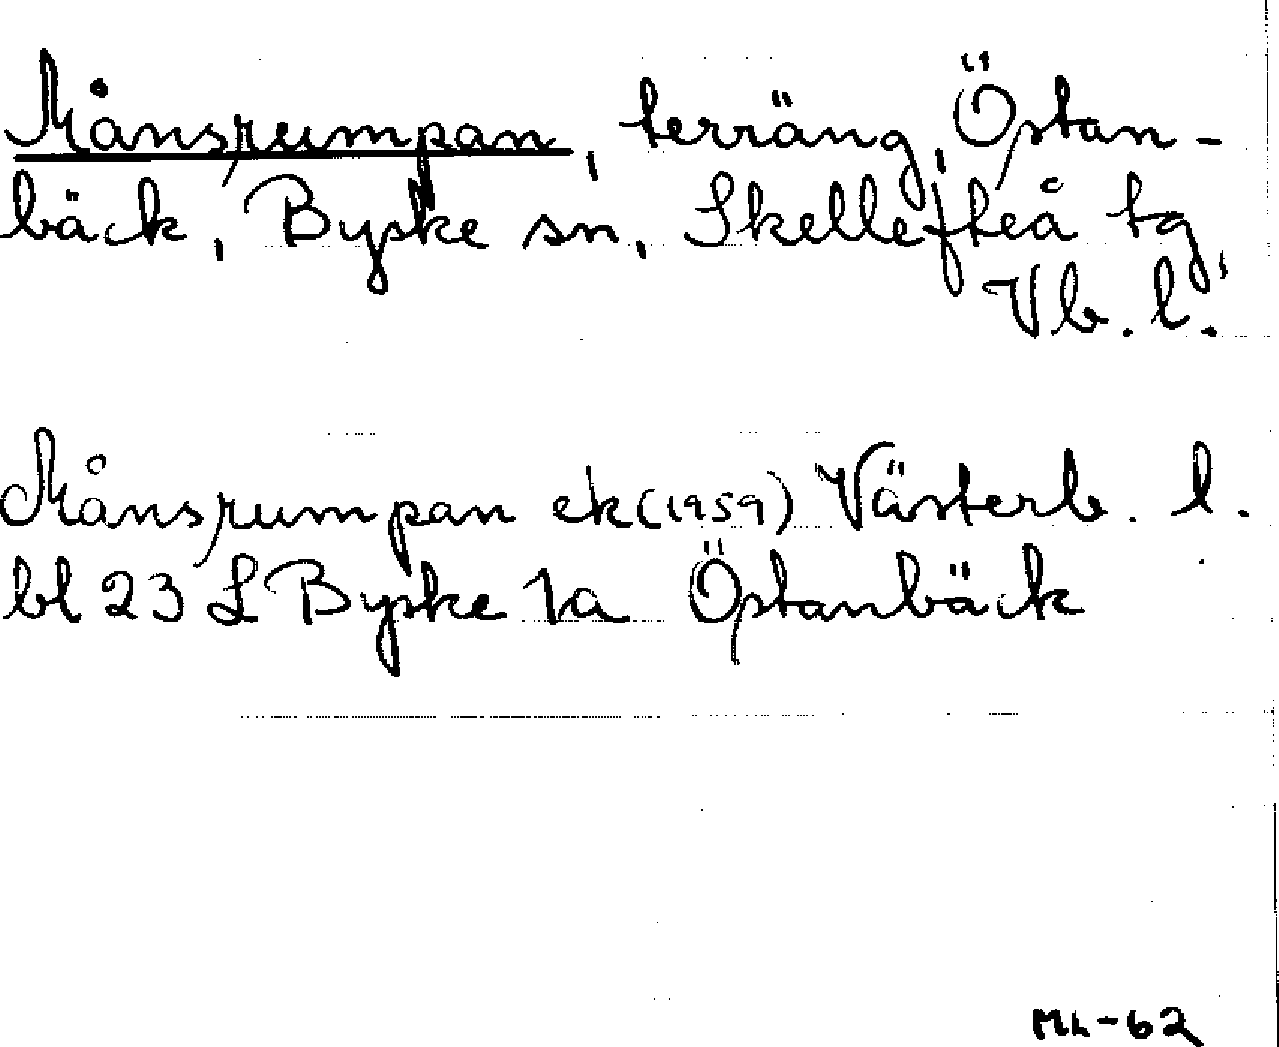 Månsrumpan, terräng, Östan-
bäck, Byske sn, Skellefteå tg,
Vb. l.
Månsrumpan ek (1959) Västerb. l.
bl 23 L Byske 1a Östanbäck
ML-62